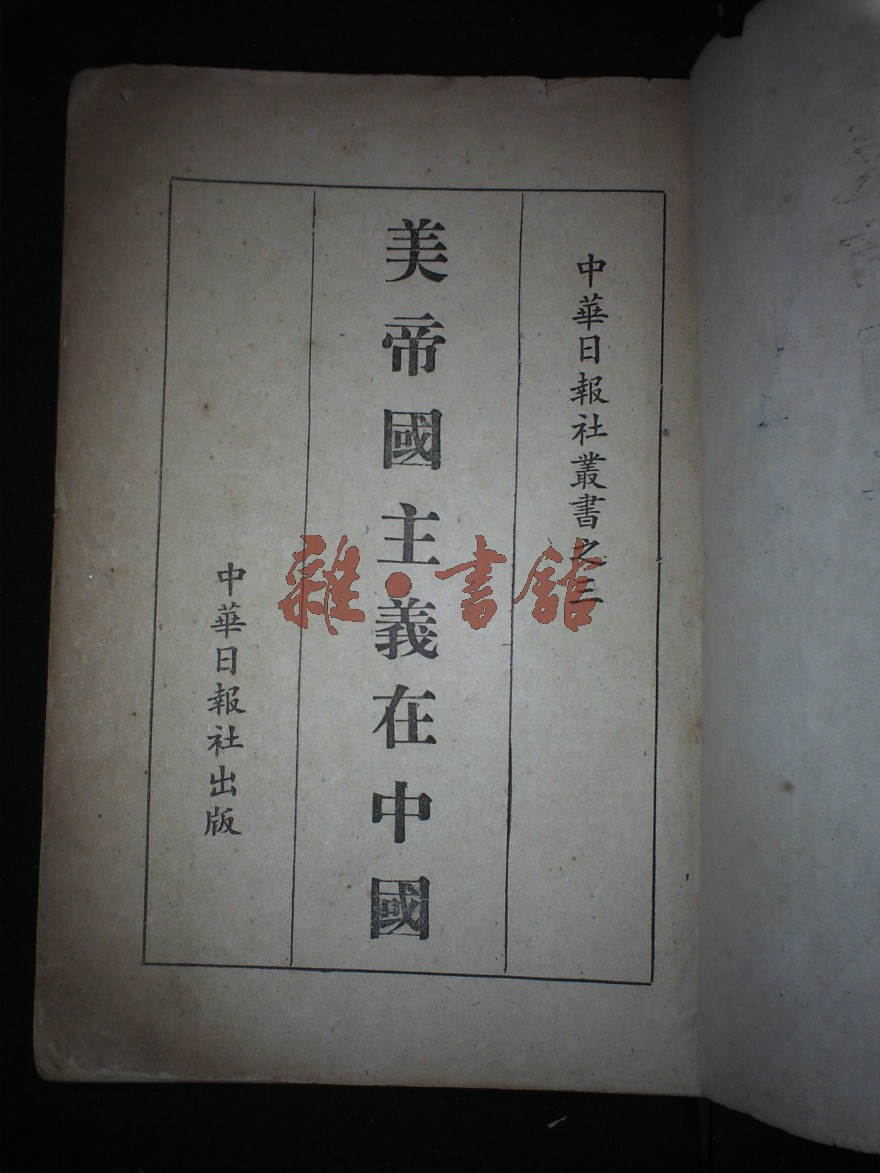 中華日報社叢書之三
美帝國主義在中國
中華日報社出版
雜·書館